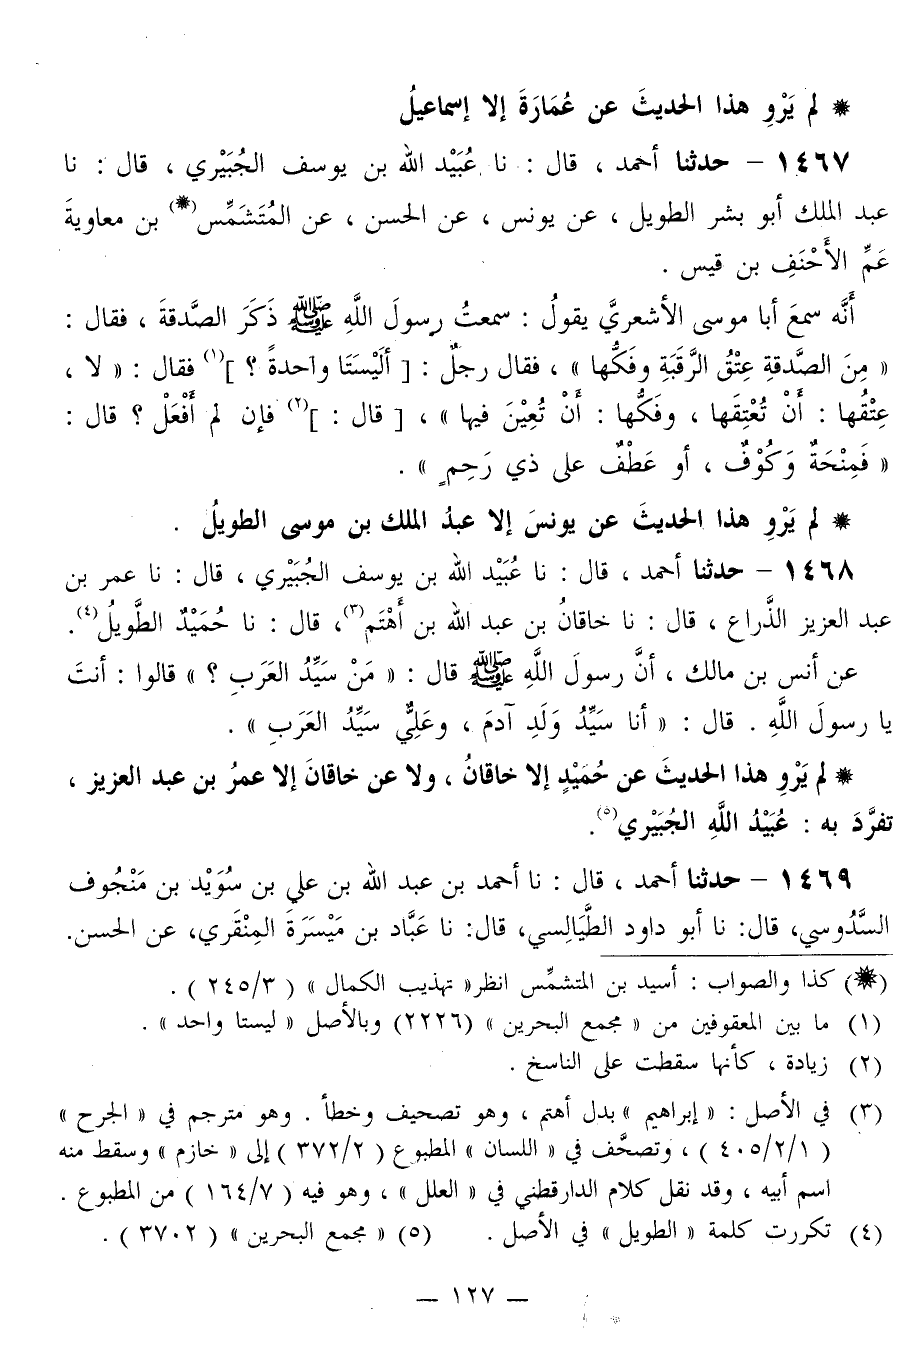 * لم يَرْوِ هذا الحديثَ عن عُمَارَةَ إلا إسماعيلُ
١٤٦٧ – حدثنا أحمد ، قال : نا عُبَيْد الله بن يوسف الجُبَيْري ، قال : نا
عبد الملك أبو بشر الطويل ، عن يونس ، عن الحسن ، عن المُتَشَمِّس(*) بن معاويةَ
عَمِّ الأَحْنَفِ بن قيس .
أَنَّه سمعَ أبا موسى الأشعريَّ يقولُ : سمعتُ رسولَ اللَّهِ ﷺ ذَكَرَ الصَّدقةَ ، فقال :
« مِنَ الصَّدقةِ عِتْقُ الرَّقَبَةِ وفَكُّها » ، فقال رجلٌ : [ أَلَيْسَتَا واحدةً ؟ ](١) فقال : « لا ،
عِتْقُها : أَنْ تُعْتِقَها ، وفَكُّها : أَنْ تُعِيْنَ فيها » ، [ قال : ](٢) فإن لم أَفْعَلْ ؟ قال :
« فَمِنْحَةٌ وَكُوْفٌ ، أو عَطْفٌ على ذي رَحِمٍ » .
* لم يَرْوِ هذا الحديثَ عن يونسَ إلا عبدُ الملك بن موسى الطويلُ .
١٤٦٨ – حدثنا أحمد ، قال : نا عُبَيْد الله بن يوسف الجُبَيْري ، قال : نا عمر بن
عبد العزيز الذَّراع ، قال : نا خاقانُ بن عبد الله بن أَهْتَم(٣)، قال : نا حُمَيْدٌ الطَّويلُ(٤).
عن أنس بن مالك ، أنَّ رسولَ اللَّهِ ﷺ قال : « مَنْ سَيِّدُ العَرَبِ ؟ » قالوا : أنتَ
يا رسولَ اللَّهِ . قال : « أنا سَيِّدُ وَلَدِ آدمَ ، وعَلِيٌّ سَيِّدُ العَرَبِ » .
* لم يَرْوِ هذا الحديثَ عن حُمَيْدٍ إلا خاقانُ ، ولا عن خاقانَ إلا عمرُ بن عبد العزيز ،
تفرَّدَ به : عُبَيْدُ اللَّهِ الجُبَيْري(٥).
١٤٦٩ – حدثنا أحمد ، قال : نا أحمد بن عبد الله بن علي بن سُوَيْد بن مَنْجُوف
السَّدُوسي، قال: نا أبو داود الطَّيَالِسي، قال: نا عَبَّاد بن مَيْسَرَةَ المِنْقَري، عن الحسن.
(*) كذا والصواب : أسيد بن المتشمِّس انظر« تهذيب الكمال » ( ٢٤٥/٣ ) .
(١) ما بين المعقوفين من « مجمع البحرين » (٢٢٢٦) وبالأصل « ليستا واحد » .
(٢) زيادة ، كأنها سقطت على الناسخ .
(٣) في الأصل : « إبراهيم » بدل أهتم ، وهو تصحيف وخطأ . وهو مترجم في « الجرح »
( ٤٠٥/٢/١ ) ، وتصحَّف في « اللسان » المطبوع ( ٣٧٢/٢ ) إلى « خازم » وسقط منه
اسم أبيه ، وقد نقل كلام الدارقطني في « العلل » ، وهو فيه ( ١٦٤/٧ ) من المطبوع .
(٤) تكررت كلمة « الطويل » في الأصل . (٥) « مجمع البحرين » ( ٣٧٠٢ ) .
— ١٢٧ —